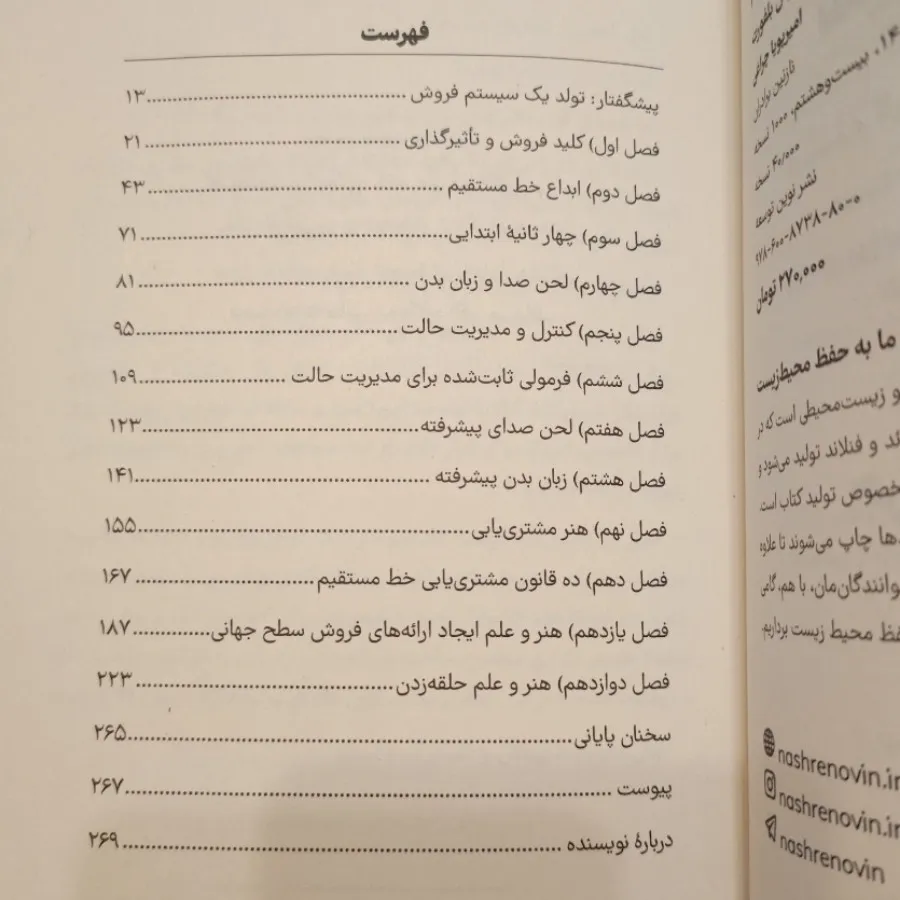 فهرست
پیشگفتار: تولد یک سیستم فروش ........ ۱۳
فصل اول) کلید فروش و تأثیرگذاری ........ ۲۱
فصل دوم) ابداع خط مستقیم ........ ۴۳
فصل سوم) چهار ثانیهٔ ابتدایی ........ ۷۱
فصل چهارم) لحن صدا و زبان بدن ........ ۸۱
فصل پنجم) کنترل و مدیریت حالت ........ ۹۵
فصل ششم) فرمولی ثابت‌شده برای مدیریت حالت ........ ۱۰۹
فصل هفتم) لحن صدای پیشرفته ........ ۱۲۳
فصل هشتم) زبان بدن پیشرفته ........ ۱۴۱
فصل نهم) هنر مشتری‌یابی ........ ۱۵۵
فصل دهم) ده قانون مشتری‌یابی خط مستقیم ........ ۱۶۷
فصل یازدهم) هنر و علم ایجاد ارائه‌های فروش سطح جهانی ........ ۱۸۷
فصل دوازدهم) هنر و علم حلقه‌زدن ........ ۲۲۳
سخنان پایانی ........ ۲۶۵
پیوست ........ ۲۶۷
دربارهٔ نویسنده ........ ۲۶۹
بلفورت
امیرپویا چراغی
نازنین
۱۴۰، بیست‌وهشتم، ۱۰۰۰ نسخه
۴۰٫۰۰۰ نسخه
نشر نوین توسعه
۹۷۸-۶۰۰-۸۷۳۸-۸۰-۰
۲۷۰,۰۰۰ تومان
ما به حفظ محیط‌زیست
و زیست‌محیطی است که در
و فنلاند تولید می‌شود و
خصوص تولید کتاب است.
چاپ می‌شوند تا علاوه
با هم، گامی
محیط زیست برداریم.
nashrenovin.ir
nashrenovin.ir
nashrenovin